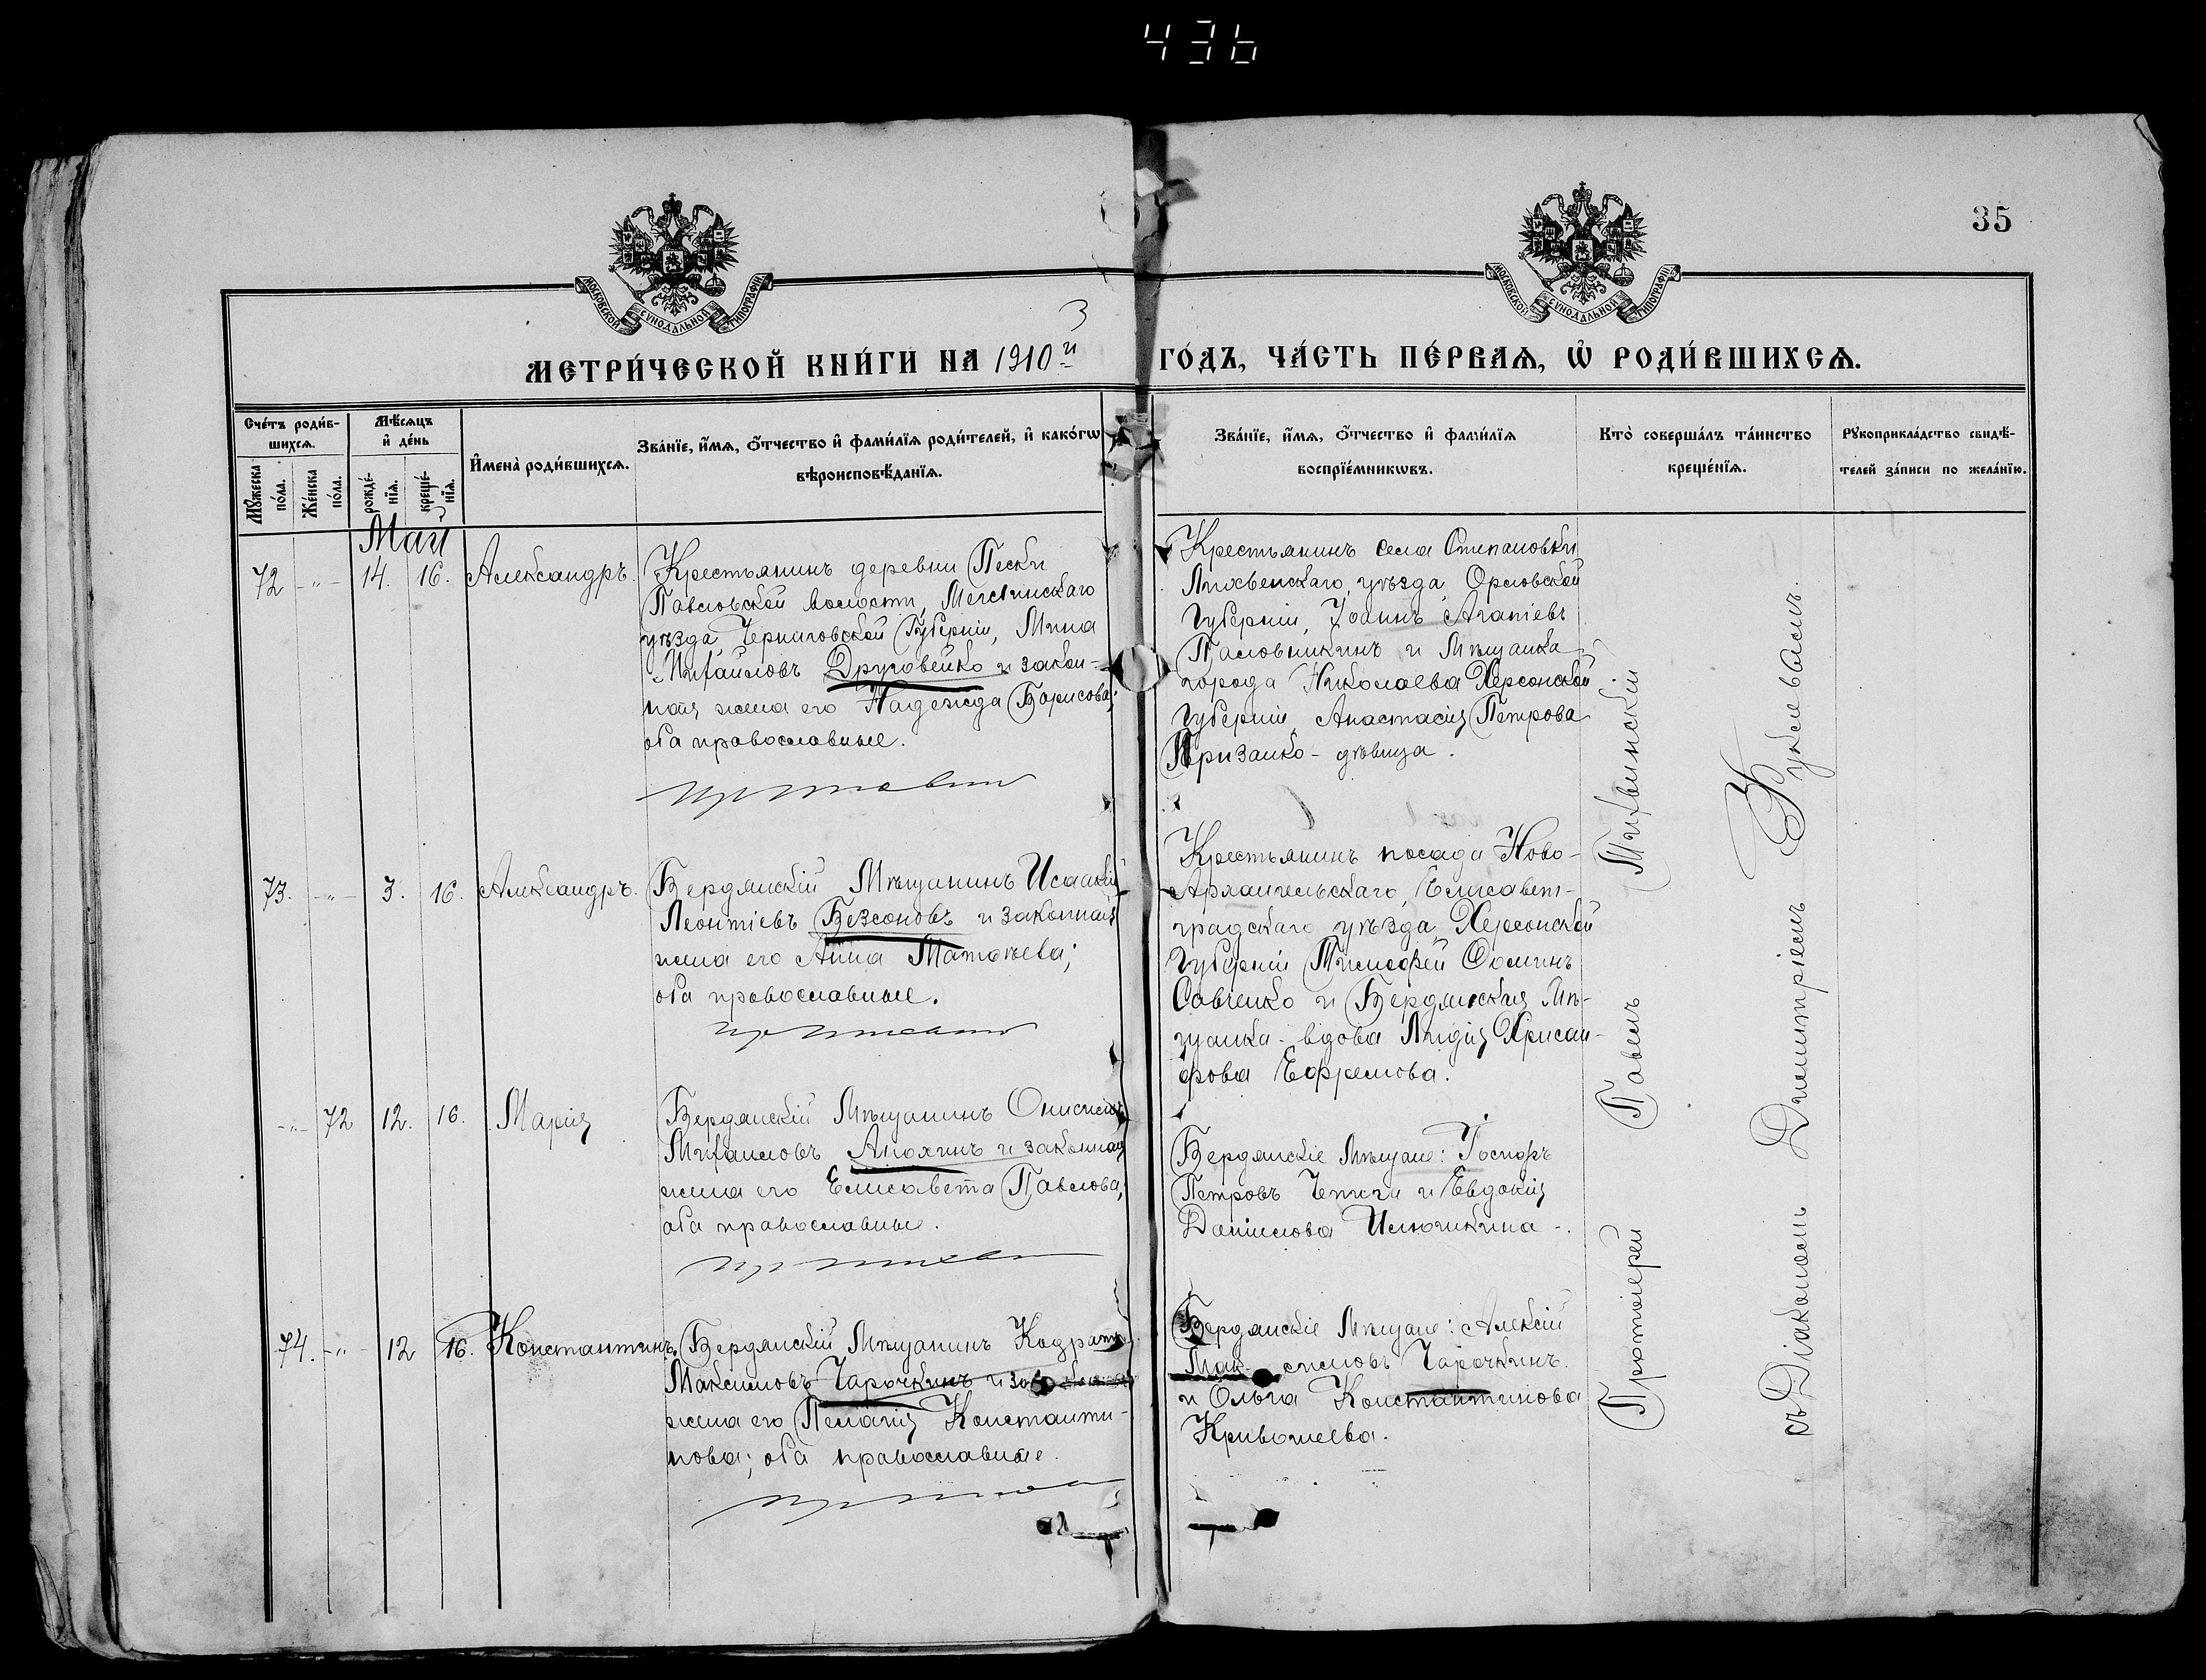 436
35
МОСКОВСКОЙ СУНОДАЛЬНОЙ ТИПОГРАФІИ
МОСКОВСКОЙ СУНОДАЛЬНОЙ ТИПОГРАФІИ
3
МЕТРИ́ЧЕСКОЙ КНИ́ГИ НА 1910й ГО́ДЪ, ЧА́СТЬ ПЕ́РВАѦ, Ѡ҆ РОДИ́ВШИХСѦ.
Сче́тъ роди́вшихсѧ.
Мꙋ́жеска по́ла.
Же́нска по́ла.
Мѣ́сѧцъ и҆ де́нь
рожде́нїѧ.
креще́нїѧ.
И҆мена̀ роди́вшихсѧ.
Зва́нїе, и҆́мѧ, ѻ҆́тчество и҆ фами́лїѧ роди́телей, и҆ како́гѡ
вѣроисповѣ́данїѧ.
Зва́нїе, и҆́мѧ, ѻ҆́тчество и҆ фами́лїѧ
воспрїе́мникѡвъ.
Кто̀ соверша́лъ та́инство
креще́нїѧ.
Рꙋкоприкла́дство свидѣ́-
телей за́писи по жела́нїю.
Май
72 -"- 14. 16. Александръ.
Крестьянинъ деревни Пески
Павловской волости, Мглинскаго
уѣзда, Черниговской Губерніи, Мина
Михайловъ Друговейко и закон-
ная жена его Надежда Борисова;
оба православные.
Крестьянинъ села Степановки
уѣзда, Орловской
Губерніи, Іоаннъ Агапіевъ
и Мѣщанка
города Николаева Херсонской
Губерніи, Анастасія Петрова
дѣвица.
73. -"- 3. 16. Александръ.
Бердянскій Мѣщанинъ Исаакій
Леонтіевъ Безсоновъ и законная
жена его Анна Матѳѣева;
оба православные.
Крестьянинъ посада Ново-
Архангельскаго, Елисавет-
градскаго уѣзда, Херсонской
Губерніи Тимоѳей Ѳоминъ
Савченко и Бердянская Мѣ-
щанка - вдова Лидія Хрисан-
фова Ефремова.
-"- 72 12. 16. Марія
Бердянскій Мѣщанинъ Онисимъ
Михайловъ Анохинъ и законная
жена его Елисавета Павлова;
оба православные.
Бердянскіе Мѣщане: Іосифъ
Петровъ Чепига и Евдокія
Даніилова Илюшкина -.
74. -"- 12 16. Константинъ.
Бердянскій Мѣщанинъ Кодратъ
Максимовъ Чарочкинъ и законная
жена его Пелагія Константи-
нова; оба православные.
Бердянскіе Мѣщане: Алексій
Максимовъ Чарочкинъ.
и Ольга Константинова
Кривошеева.
Протоіерей Павелъ Тихвинскій
съ Діакономъ Димитріемъ